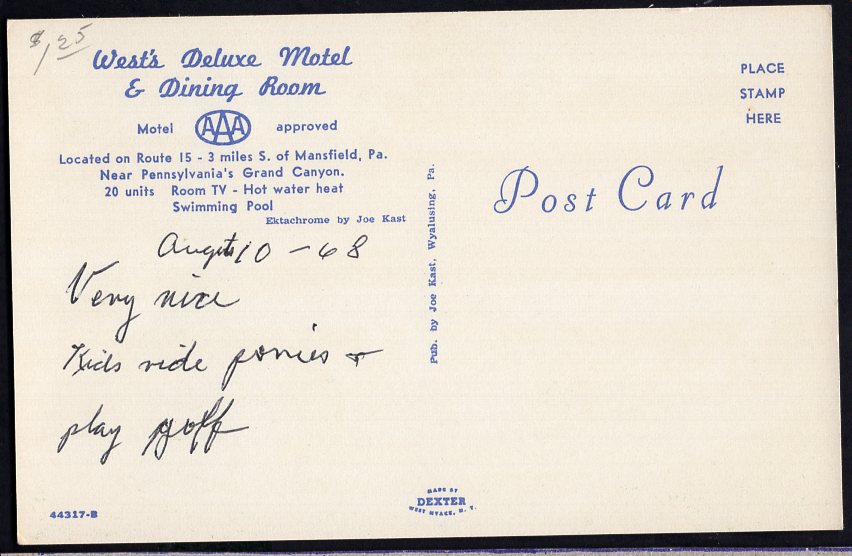 $1.25
West's Deluxe Motel
& Dining Room
Motel AAA approved
Located on Route 15 - 3 miles S. of Mansfield, Pa.
Near Pennsylvania's Grand Canyon.
20 units Room TV - Hot water heat
Swimming Pool
Ektachrome by Joe Kast
10 - 68
Very nice
Kids ride ponies +
play golf
44317-B
Pub. by Joe Kast, Wyalusing, Pa.
PLACE
STAMP
HERE
Post Card
MADE BY
DEXTER
WEST NYACK, N. Y.